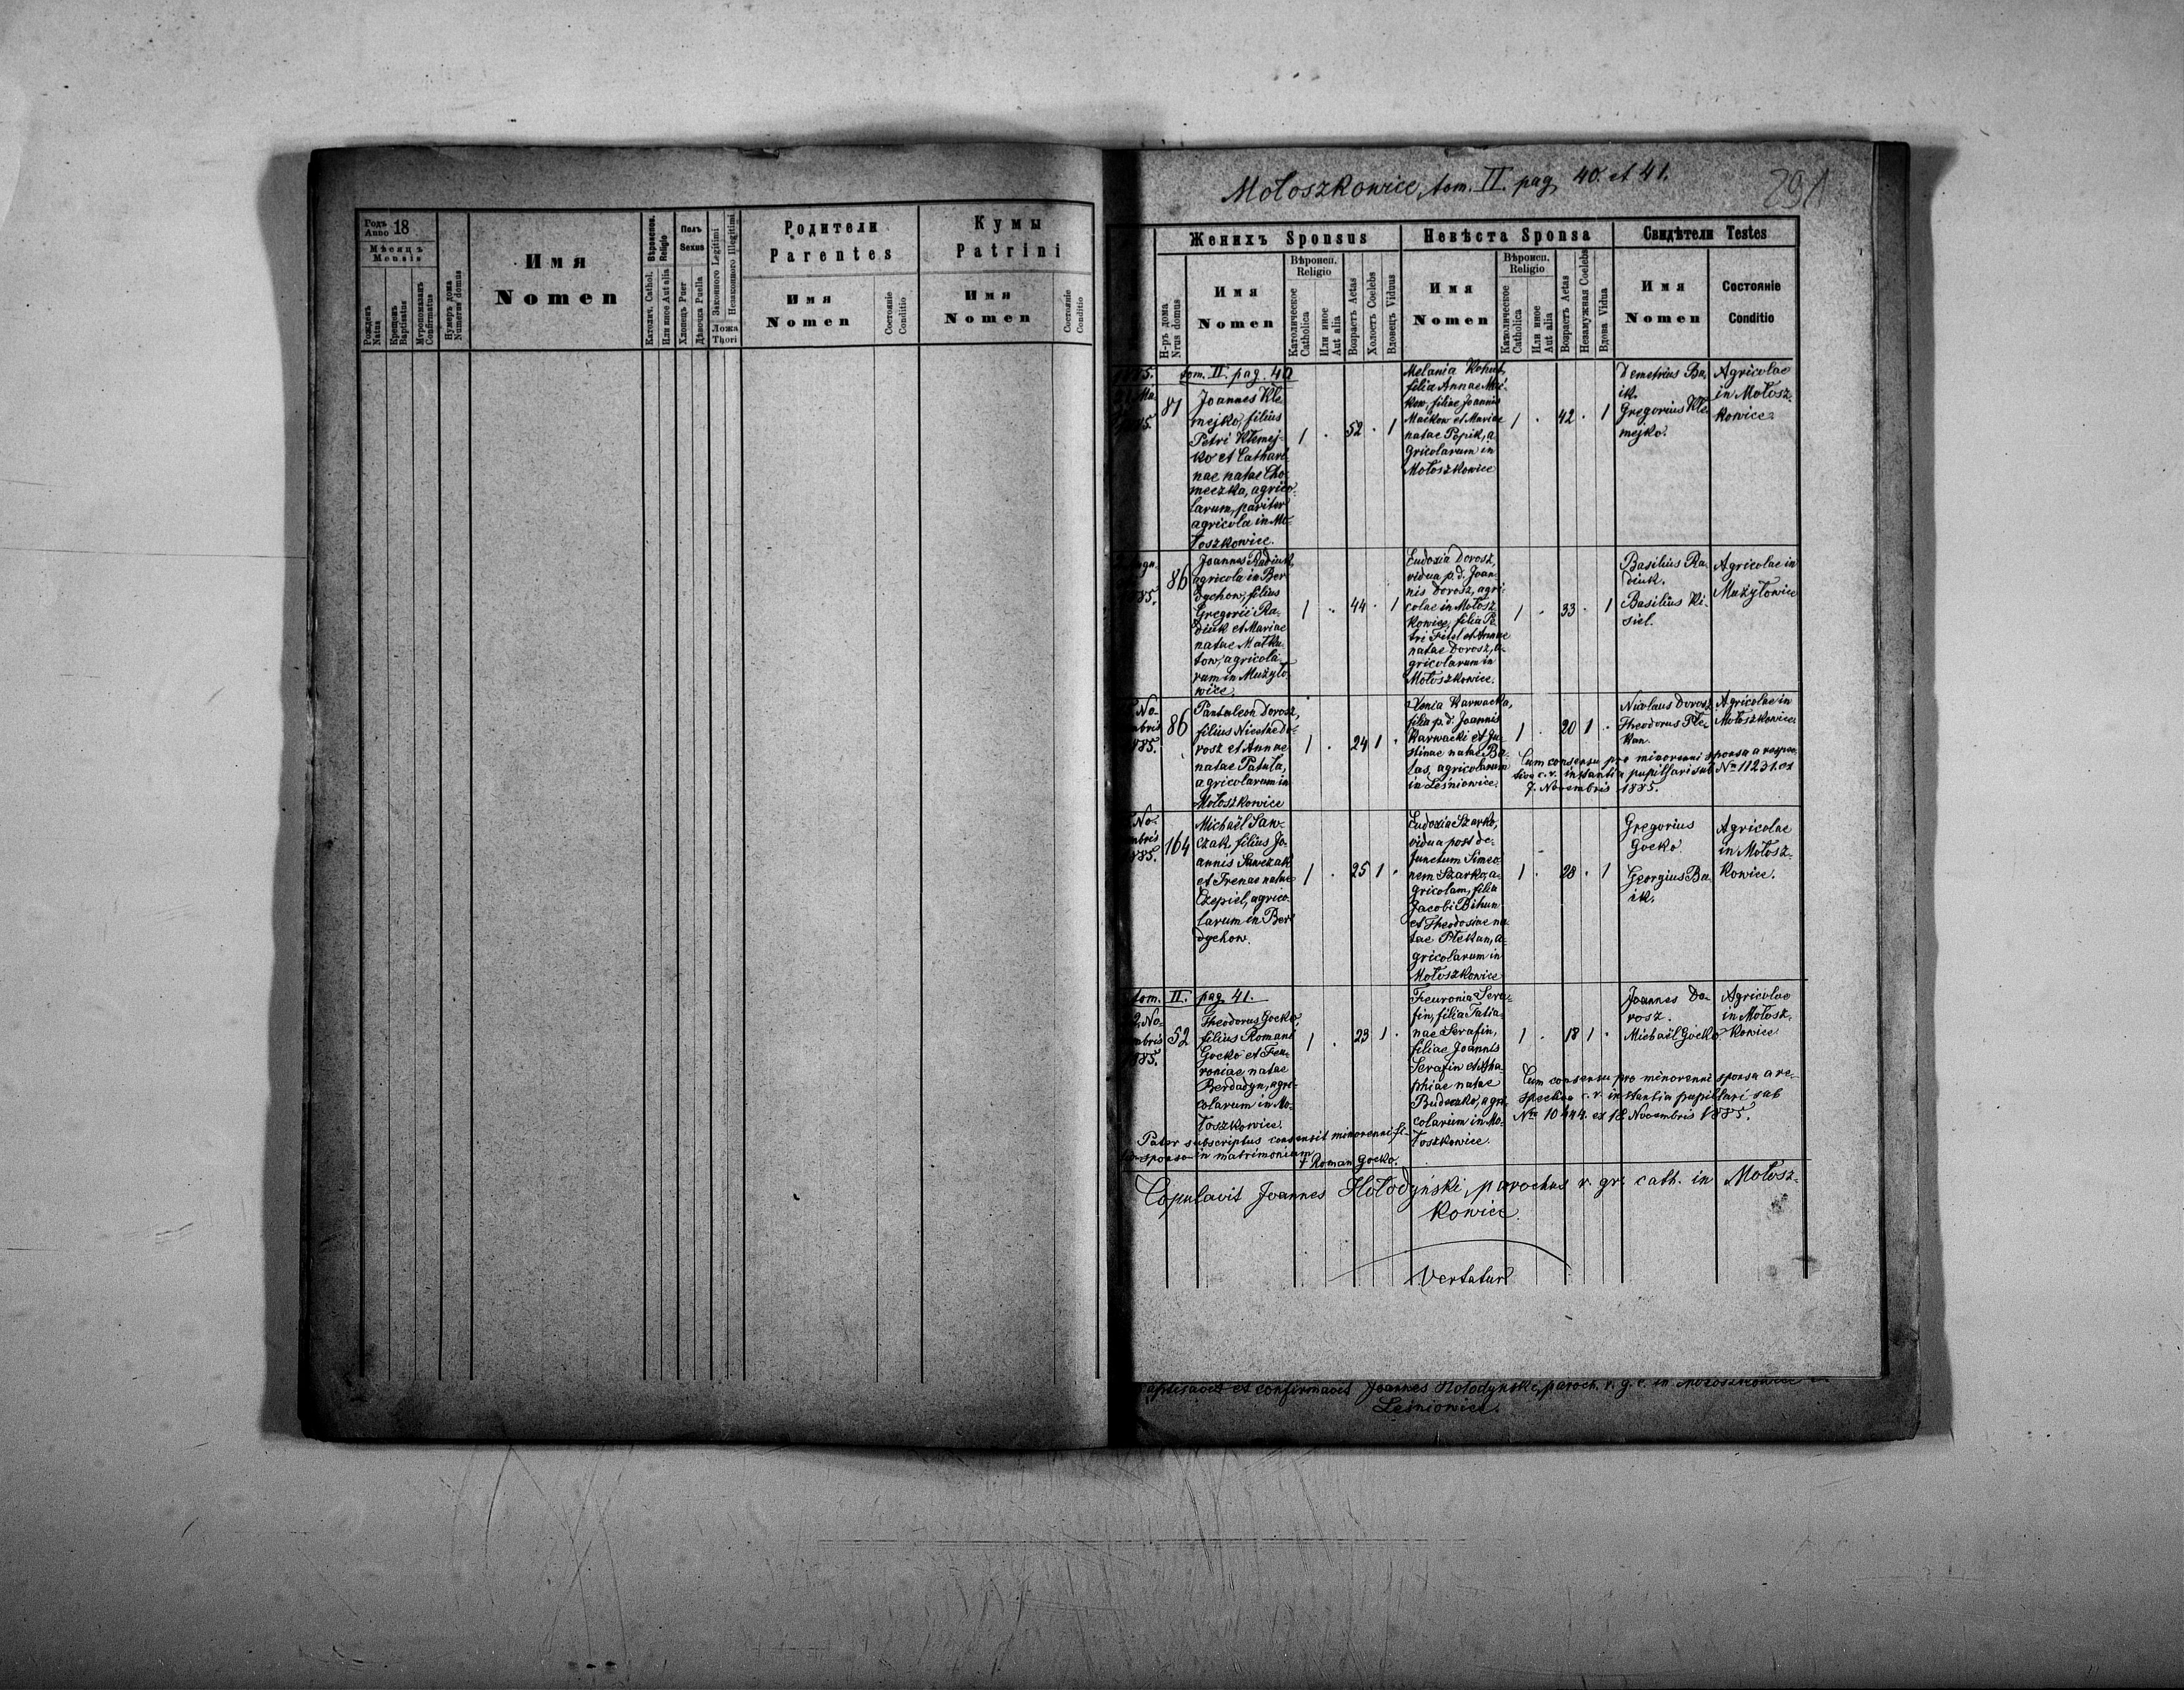 Родъ Anno 18
Мѣсяцъ
Mensis
Рожденъ
Natus
Крещенъ
Baptisatus
Мѵропомазанъ
Confirmatus
Нумеръ дома
Numerus domus
Имя
Nomen
Вѣроиспов.
Religio
Католич. Cathol.
Или иное Aut alia
Полъ
Sexus
Хлопецъ Puer
Дѣвочка Puella
Законного Legitimi
Незаконного Illegitimi
Ложа
Thori
Родители
Parentes
Имя
Nomen
Состояніе
Conditio
Кумы
Patrini
Имя
Nomen
Состояніе
Conditio
Mołoszkowice, tom. II. pag. 40. et 41.
291
Женихъ Sponsus
Невѣста Sponsa
Свидѣтели Testes
Н-ръ дома
Nrus domus
Имя
Nomen
Вѣроисп.
Religio
Католическое
Catholica
Или иное
Aut alia
Возрастъ Aetas
Холостъ Coelebs
Вдовецъ Viduus
Имя
Nomen
Вѣроисп.
Religio
Католическое
Catholica
Или иное
Aut alia
Возрастъ Aetas
Незамужная Coelebs
Вдова Vidua
Имя
Nomen
Состояніе
Conditio
tom. II. pag. 40
81
Joannes Kle-
mejko, filius
Petri Klemej-
ko et Cathari-
nae natae Cho-
meczka, agrico-
larum, pariter
agricola in Mo-
łoszkowice.
1 . 52 . 1
Melania Kohut,
filia Annae Mać-
kow, filiae Joannis
Maćkow et Mariae
natae Pepik, a-
gricolarum in
Mołoszkowice
1 . 42 . 1
Demetrius Ba-
ik.
Gregorius Kle-
mejko.
Agricolae
in Mołosz-
kowice.
86
Joannes Radiuk,
agricola in Ber-
dychow, filius
Gregorii Ra-
diuk et Mariae
natae
agricola-
rum in Mużyło-
wice.
1 . 44 . 1
Eudoxia Dorosz,
vidua p. d. Joan-
nis Dorosz, agri-
colae in Mołosz-
kowice, filia Pe-
tri et Annae
natae Dorosz, a-
gricolarum in
Mołoszkowice.
1 . 33 . 1
Basilius Ra-
diuk.
Basilius Ki-
siel.
Agricolae in
Mużyłowice
No-
mbris
885.
86
Pantaleon Dorosz,
filius Nicetae Do-
rosz et Annae
natae Patuła,
agricolarum in
Mołoszkowice
1 . 24 1 .
Xenia Karwacka,
filia p. d. Joannis
Karwacki et Ju-
stinae natae Ba-
las, agricolarum
in Leśniowice.
1 . 20 1 .
Nicolaus Dorosz
Theodorus Ple-
kan.
Agricolae in
Mołoszkowice
Cum consensu pro minorenni sponsa a respec-
tiva c. r. instantia pupillari sub Nro 11231. ex
7. Novembris 1885.
No-
mbris
885.
164
Michaël Saw-
czak, filius Jo-
annis Sawczak
et Irenae natae
Czepiel, agrico-
larum in Ber-
dychow.
1 . 25 1 .
Eudoxia Szarko,
vidua post de-
functum Simeo-
nem Szarko, a-
gricolam, filia
Jacobi Bihun
et Theodosiae na-
tae Plekan, a-
gricolarum in
Mołoszkowice
1 . 28 . 1
Gregorius
Gocko
Georgius Ba-
ik.
Agricolae
in Mołosz-
kowice.
tom. II. pag. 41.
No-
mbris
885.
52
Theodorus Gocko,
filius Romani
Gocko et Feu-
roniae natae
Berdadyn, agri-
colarum in Mo-
łoszkowice.
1 . 23 1 .
Feuronia Sera-
fin, filia Tatia-
nae Serafin,
filiae Joannis
Serafin et Aga-
phiae natae
Budeczko, agri-
colarum in Mo-
łoszkowice.
1 . 18 1 .
Joannes Do-
rosz.
Michaël Gocko
Agricolae
in Mołosz-
kowice.
Cum consensu pro minorenni sponsa a re-
spectiva c. r. instantia pupillari sub
Nro 10444. ex 18 Novembris 1885.
Pater subscriptus consensit minorenni fi-
sponso in matrimonium
† Roman Gocko.
Copulavit Joannes Hołodyński, parochus r. gr. cath. in Mołosz-
kowice.
Vertatur
baptisavit et confirmavit Joannes Hołodyński, paroch. r. g. c. in Mołoszkowice
Leśniowice.